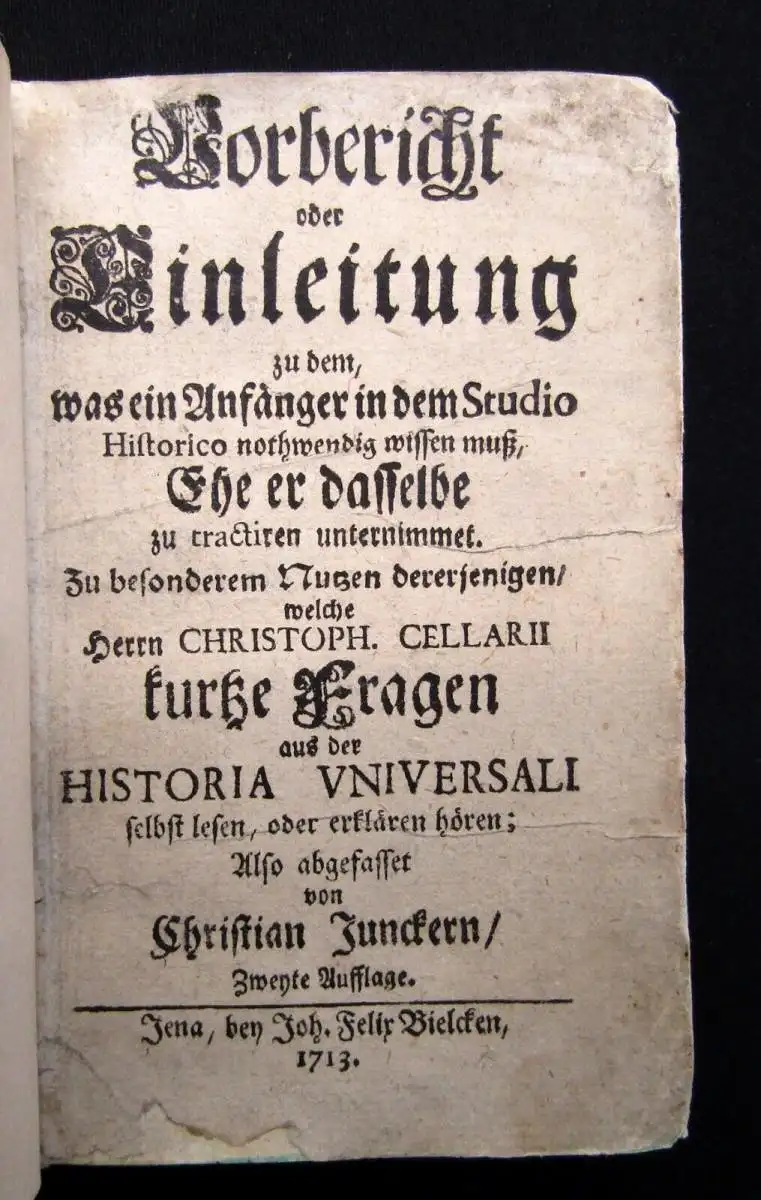 Vorbericht
oder
Einleitung
zu dem,
was ein Anfänger in dem Studio
Historico nothwendig wissen muß,
Ehe er dasselbe
zu tractiren unternimmet.
Zu besonderem Nutzen dererjenigen/
welche
Herrn CHRISTOPH. CELLARII
kurtze Fragen
aus der
HISTORIA VNIVERSALI
selbst lesen, oder erklären hören;
Also abgefasset
von
Christian Junckern/
Zweyte Aufflage.
Jena, bey Joh. Felix Bielcken,
1713.